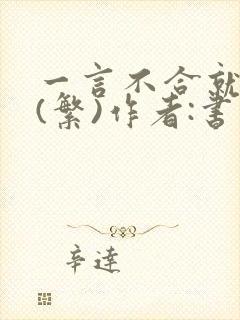 一言不合就
(繁)作者:書
辛達